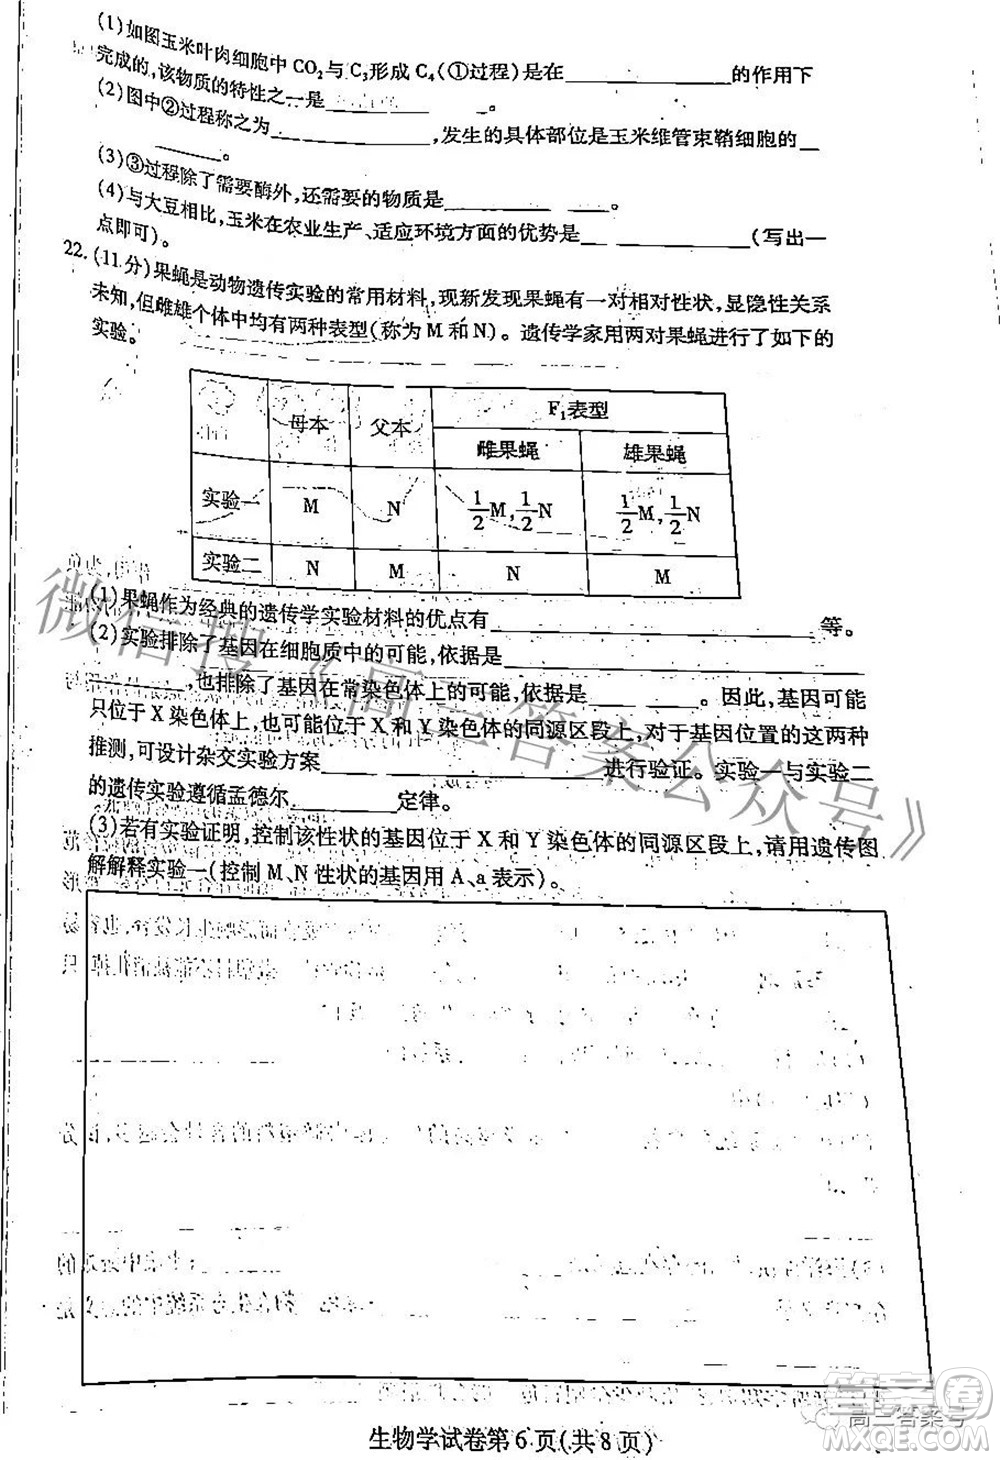 (1)如图玉米叶肉细胞中 CO₂与 C₃形成 C₄(①过程)是在____的作用下
完成的,该物质的特性之一是____。
(2)图中②过程称之为____,发生的具体部位是玉米维管束鞘细胞的__
____。
(3)③过程除了需要酶外,还需要的物质是____。
(4)与大豆相比,玉米在农业生产、适应环境方面的优势是____(写出一
点即可)。
22. (11分)果蝇是动物遗传实验的常用材料,现新发现果蝇有一对相对性状,显隐性关系
未知,但雌雄个体中均有两种表型(称为 M 和 N)。遗传学家用两对果蝇进行了如下的
实验。
母本 父本 F₁表型
雌果蝇 雄果蝇
实验一 M N 1/2 M, 1/2 N 1/2 M, 1/2 N
实验二 N M N M
(1)果蝇作为经典的遗传学实验材料的优点有____等。
(2)实验排除了基因在细胞质中的可能,依据是____
____,也排除了基因在常染色体上的可能,依据是____。因此,基因可能
只位于 X 染色体上,也可能位于 X 和 Y 染色体的同源区段上,对于基因位置的这两种
推测,可设计杂交实验方案____进行验证。实验一与实验二
的遗传实验遵循孟德尔____定律。
(3)若有实验证明,控制该性状的基因位于 X 和 Y 染色体的同源区段上,请用遗传图
解解释实验一(控制 M、N 性状的基因用 A、a 表示)。
微信搜《高三答案公众号》
生物学试卷第 6 页(共 8 页)
高三答案号
答案圈
MXQE.COM